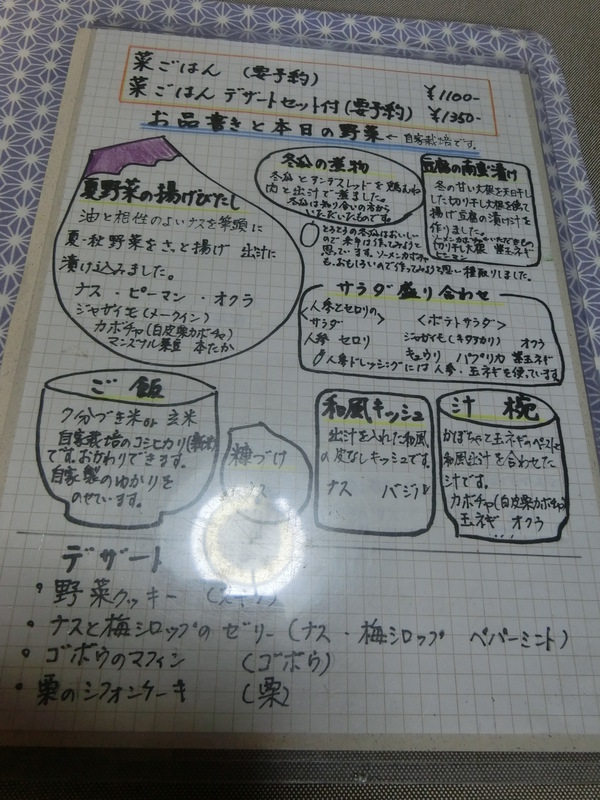 菜ごはん (要予約) ¥1100-
菜ごはん デザートセット付(要予約) ¥1350-
お品書きと本日の野菜 ← 自家栽培です。
夏野菜の揚げびたし
油と相性のよいナスを筆頭に
夏・秋野菜をさっと揚げ 出汁に
漬け込みました。
ナス・ピーマン・オクラ
ジャガイモ(メークイン)
カボチャ(白皮栗カボチャ)
冬瓜の煮物
肉と出汁で煮ました。
冬瓜は知り合いの方から
いただいたものです
とろとろの冬瓜はおいしい
ので来年は作ってみようと
思っています。ソーメンカボチャ
も、おもしろいので作ってみようと思い種取りしました。
豆腐の南蛮漬け
冬の甘い大根を天日干し
した切り干し大根を使て
揚げ豆腐の漬け汁を
作りました。
切り干し大根 紫玉ネギ
ピーマン
サラダ盛り合わせ
<人参とセロリの
サラダ>
人参 セロリ
<ポテトサラダ>
ジャガイモ(キタアカリ) オクラ
キュウリ パプリカ 紫玉ネギ
人参ドレッシングには人参・玉ネギを使っています。
ご飯
7分づき米or玄米
自家栽培のコシヒカリ(新米)
です。おかわりできます。
自家製のゆかりを
のせています。
糠づけ
和風キッシュ
出汁を入れた和風
の皮なしキッシュです。
ナス バジル
汁椀
かぼちゃと玉ネギのペーストと
和風出汁を合わせた
汁です。
カボチャ(白皮栗カボチャ)
玉ネギ オクラ
デザート
・野菜クッキー
・ナスと梅シロップのゼリー(ナス・梅シロップ ペパーミント)
・ゴボウのマフィン (ゴボウ)
・栗のシフォンケーキ (栗)